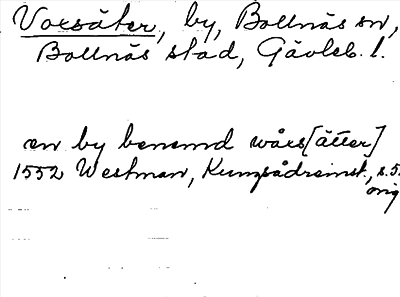 Voxsäter, by, Bollnäs sn,
Bollnäs stad, Gävleb. l.
en by benemd wårs[ätter]
1552 Westman, Kungsådreinst., s. 5.
orig